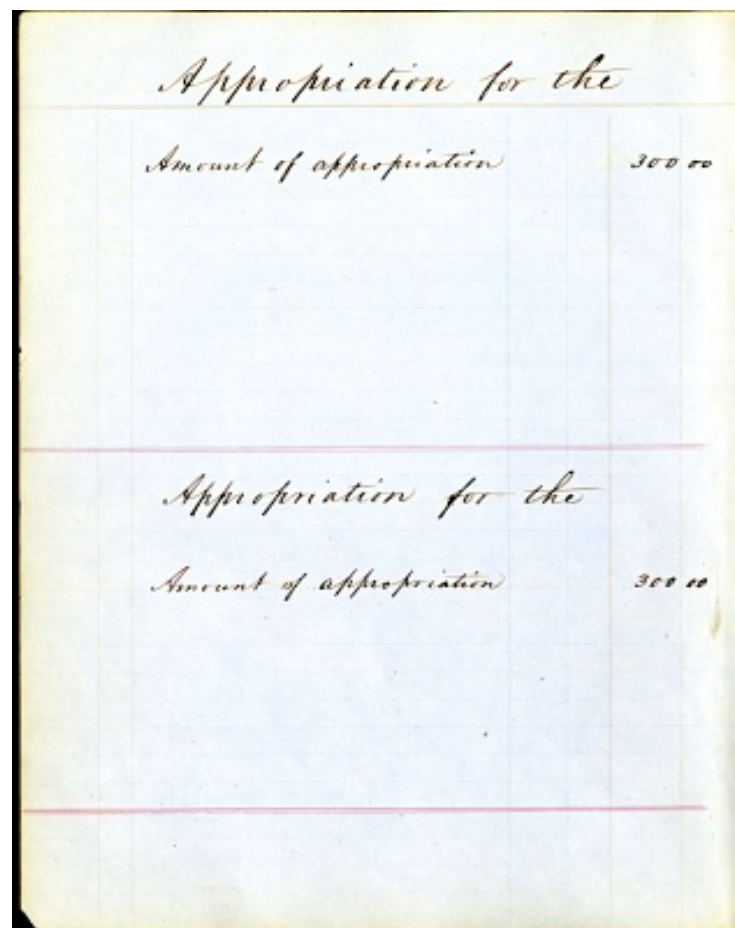 Appropriation for the
Amount of appropriation 300 00
Appropriation for the
Amount of appropriation 300 00